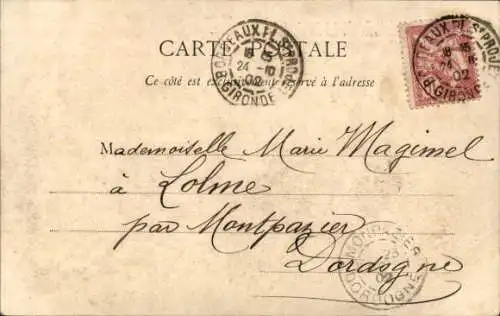 CARTE POSTALE
Ce côté est exclusivement réservé à l'adresse
BORDEAUX Pl. St PROJET
18 15
24 -10
02
GIRONDE
BORDEAUX Pl. St PROJET
18 15
24 -10
02
GIRONDE
Mademoiselle Marie Magimel
à Lolme
par Montpazier
Dordogne
MONPAZIER
25
02
DORDOGNE